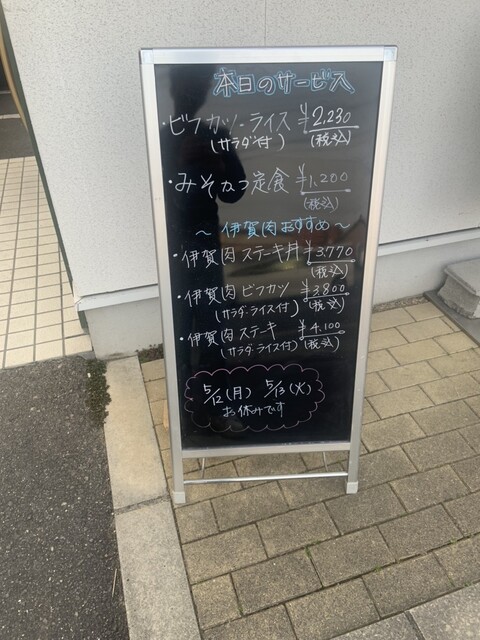 本日のサービス
・ビフカツ・ライス ¥2,230
(サラダ付) (税込)
・みそかつ定食 ¥1,200
(税込)
～伊賀肉おすすめ～
・伊賀肉ステーキ丼 ¥3,770
(税込)
・伊賀肉ビフカツ ¥3,800
(サラダ・ライス付) (税込)
・伊賀肉ステーキ ¥4,100
(サラダ・ライス付) (税込)
5/12(月) 5/13(火)
お休みです